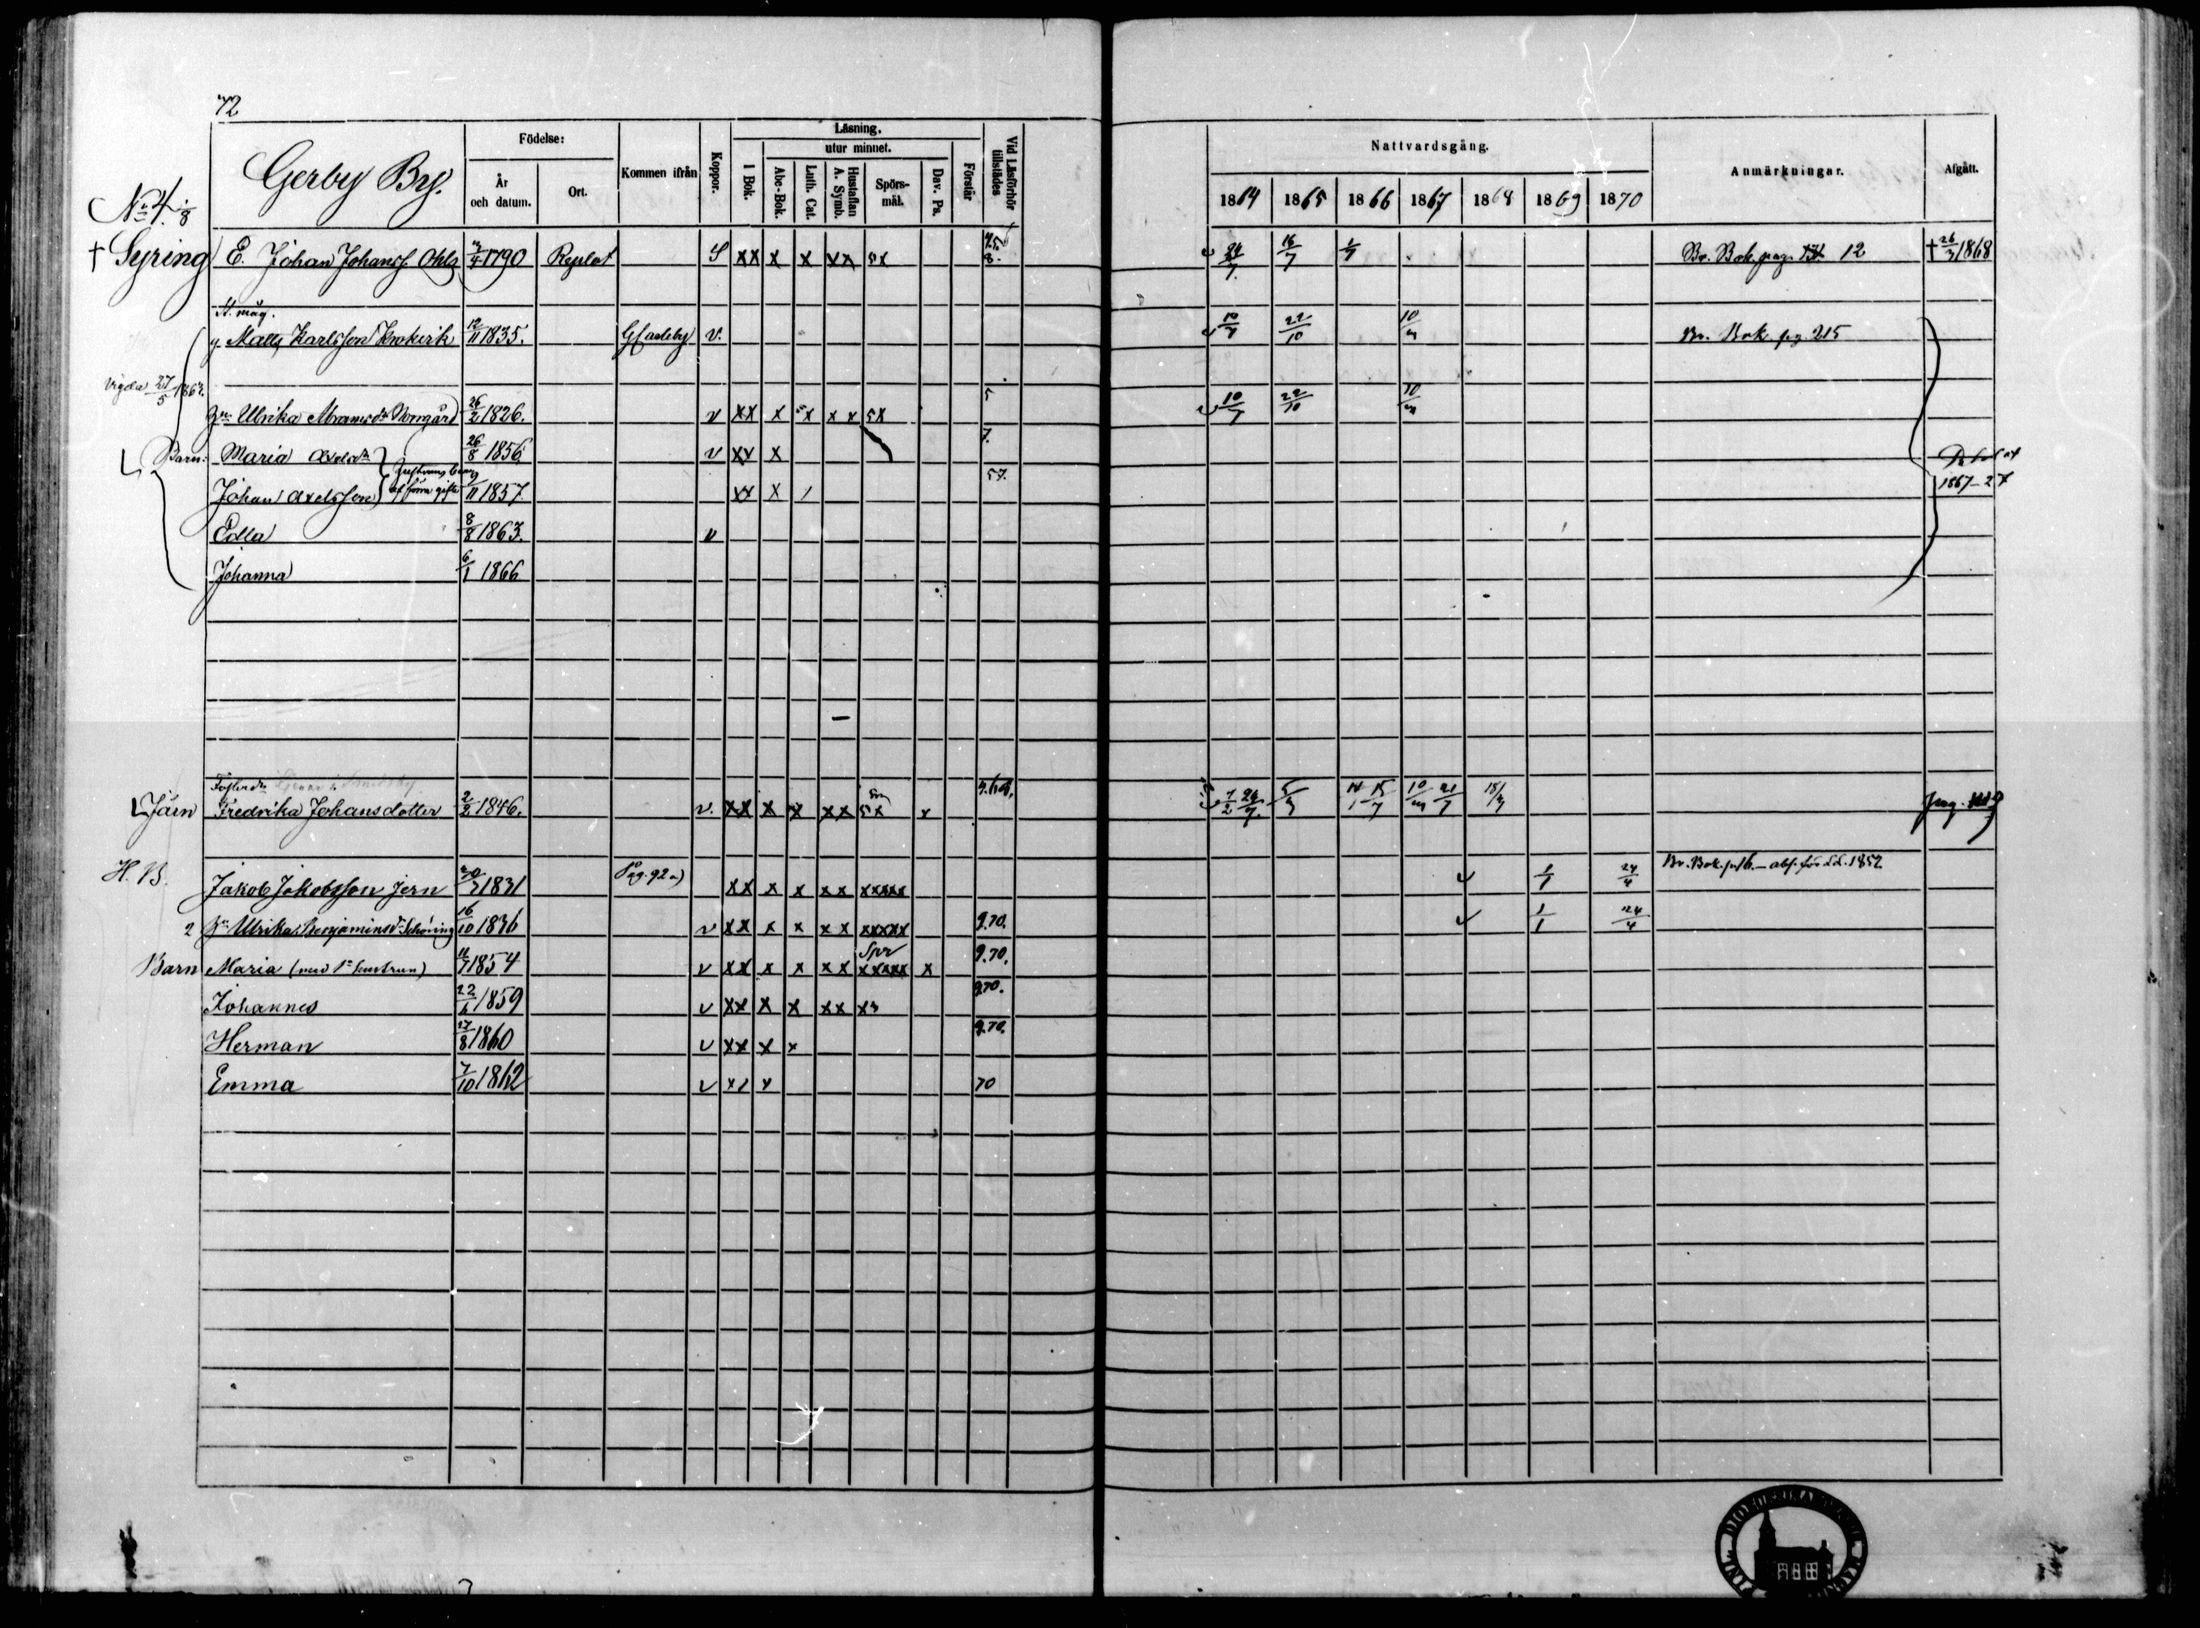 72
Gerby By.
Födelse: Kommen ifrån Koppor. Läsning. Vid Läsförhör tillstädes
År och datum. Ort. I Bok. utur minnet. Förstår
Abc-Bok. Luth. Cat. Hustaflan A. Symb. Spörs-mål. Dav. Ps.
Nattvardsgång. Anmärkningar. Afgått.
1864 1865 1866 1867 1868 1869 1870
No 4. 1/8
† Gyring E. Johan Johanss. Ohls 3/4 1790 Replot S xx x x xx 5x 24/7. 16/7 1/7 Br. Bok. pag. 12 † 26/3 1868
St. måg.
g. Matts Karlsson Krokvik 12/11 1835. v. 10/7 22/10 10/m Br. Bok. pg. 215
Vigda 27/5 1862.
Hn Ulrika Abramsdr Norrgård 26/2 1826. v xx x x x x 5x 5 10/7 22/10 10/m
Barn: Maria Axelsdr 26/8 1856. v xx x 7.
Johan Axelsson af förra gifte 9/11 1857. xx x / 57. 1867-27
Edla 8/8 1863. v
Johanna 6/1 1866
Fosterdr
Järn Fredrika Johansdotter 2/2 1846. v. xx x x xx 5x x 7/2 24/7. 5/3 14/1 15/7 10/m 21/7 18/3 pag.
H. B. Jakob Jakobsson Jern 30/7 1831 Pag. 92 a) xx x x xx xxxxx 1/1 24/4 Br. Bok. p. 16. - abs. för L.L. 1852
2 Hu Ulrika Benjaminsdr Schöring 16/10 1836 v xx x x xx xxxxx 9.70. 1/1 24/4
Barn Maria (med 1a hustrun) 11/7 1854 v xx x x xx Spr xxxxx x 9.70.
Johannes 22/6 1859 v xx x x xx x3 9.70.
Herman 27/8 1860 v xx x x 9.70.
Emma 7/10 1862 v x/ x 70